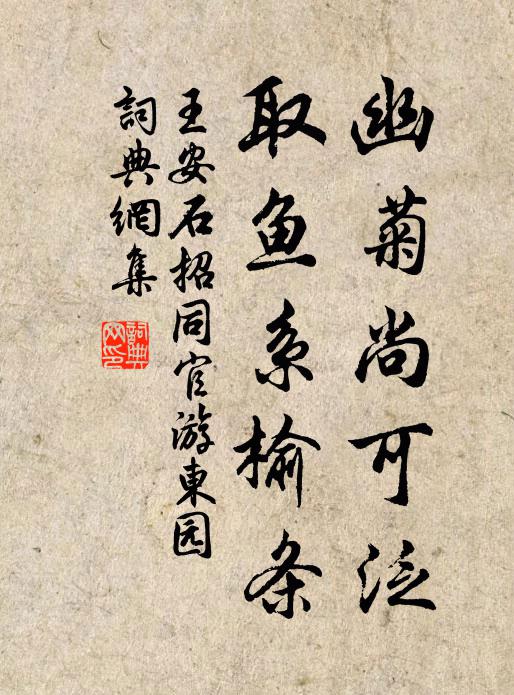 幽菊尚可泛
取鱼系榆条
王安石招同官游東园
詞典網集
詞典
网印